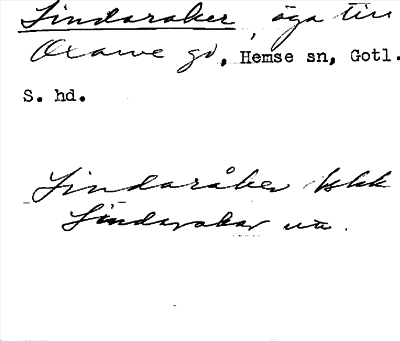 Lindaraker, äga till
Oxarve gd, Hemse sn, Gotl.
S. hd.
Lindaråker
Lindarakar